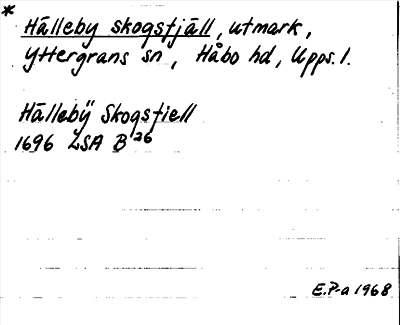 * Hälleby skogsfjäll, utmark,
Yttergrans sn, Håbo hd, Upps. l.
Hällebÿ Skogsfiell
1696 LSA B 26
E.P-a 1968